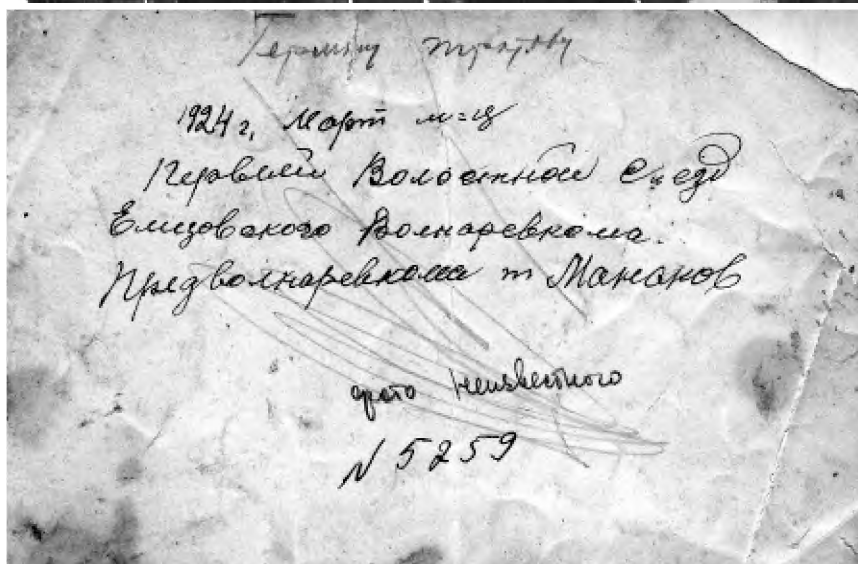 1924 г, Март м-ц
Первый Волостной Съезд
Елизовского Волнаревкома.
Предволнаревкома т Манаков
фото Неизвестного
N 5259